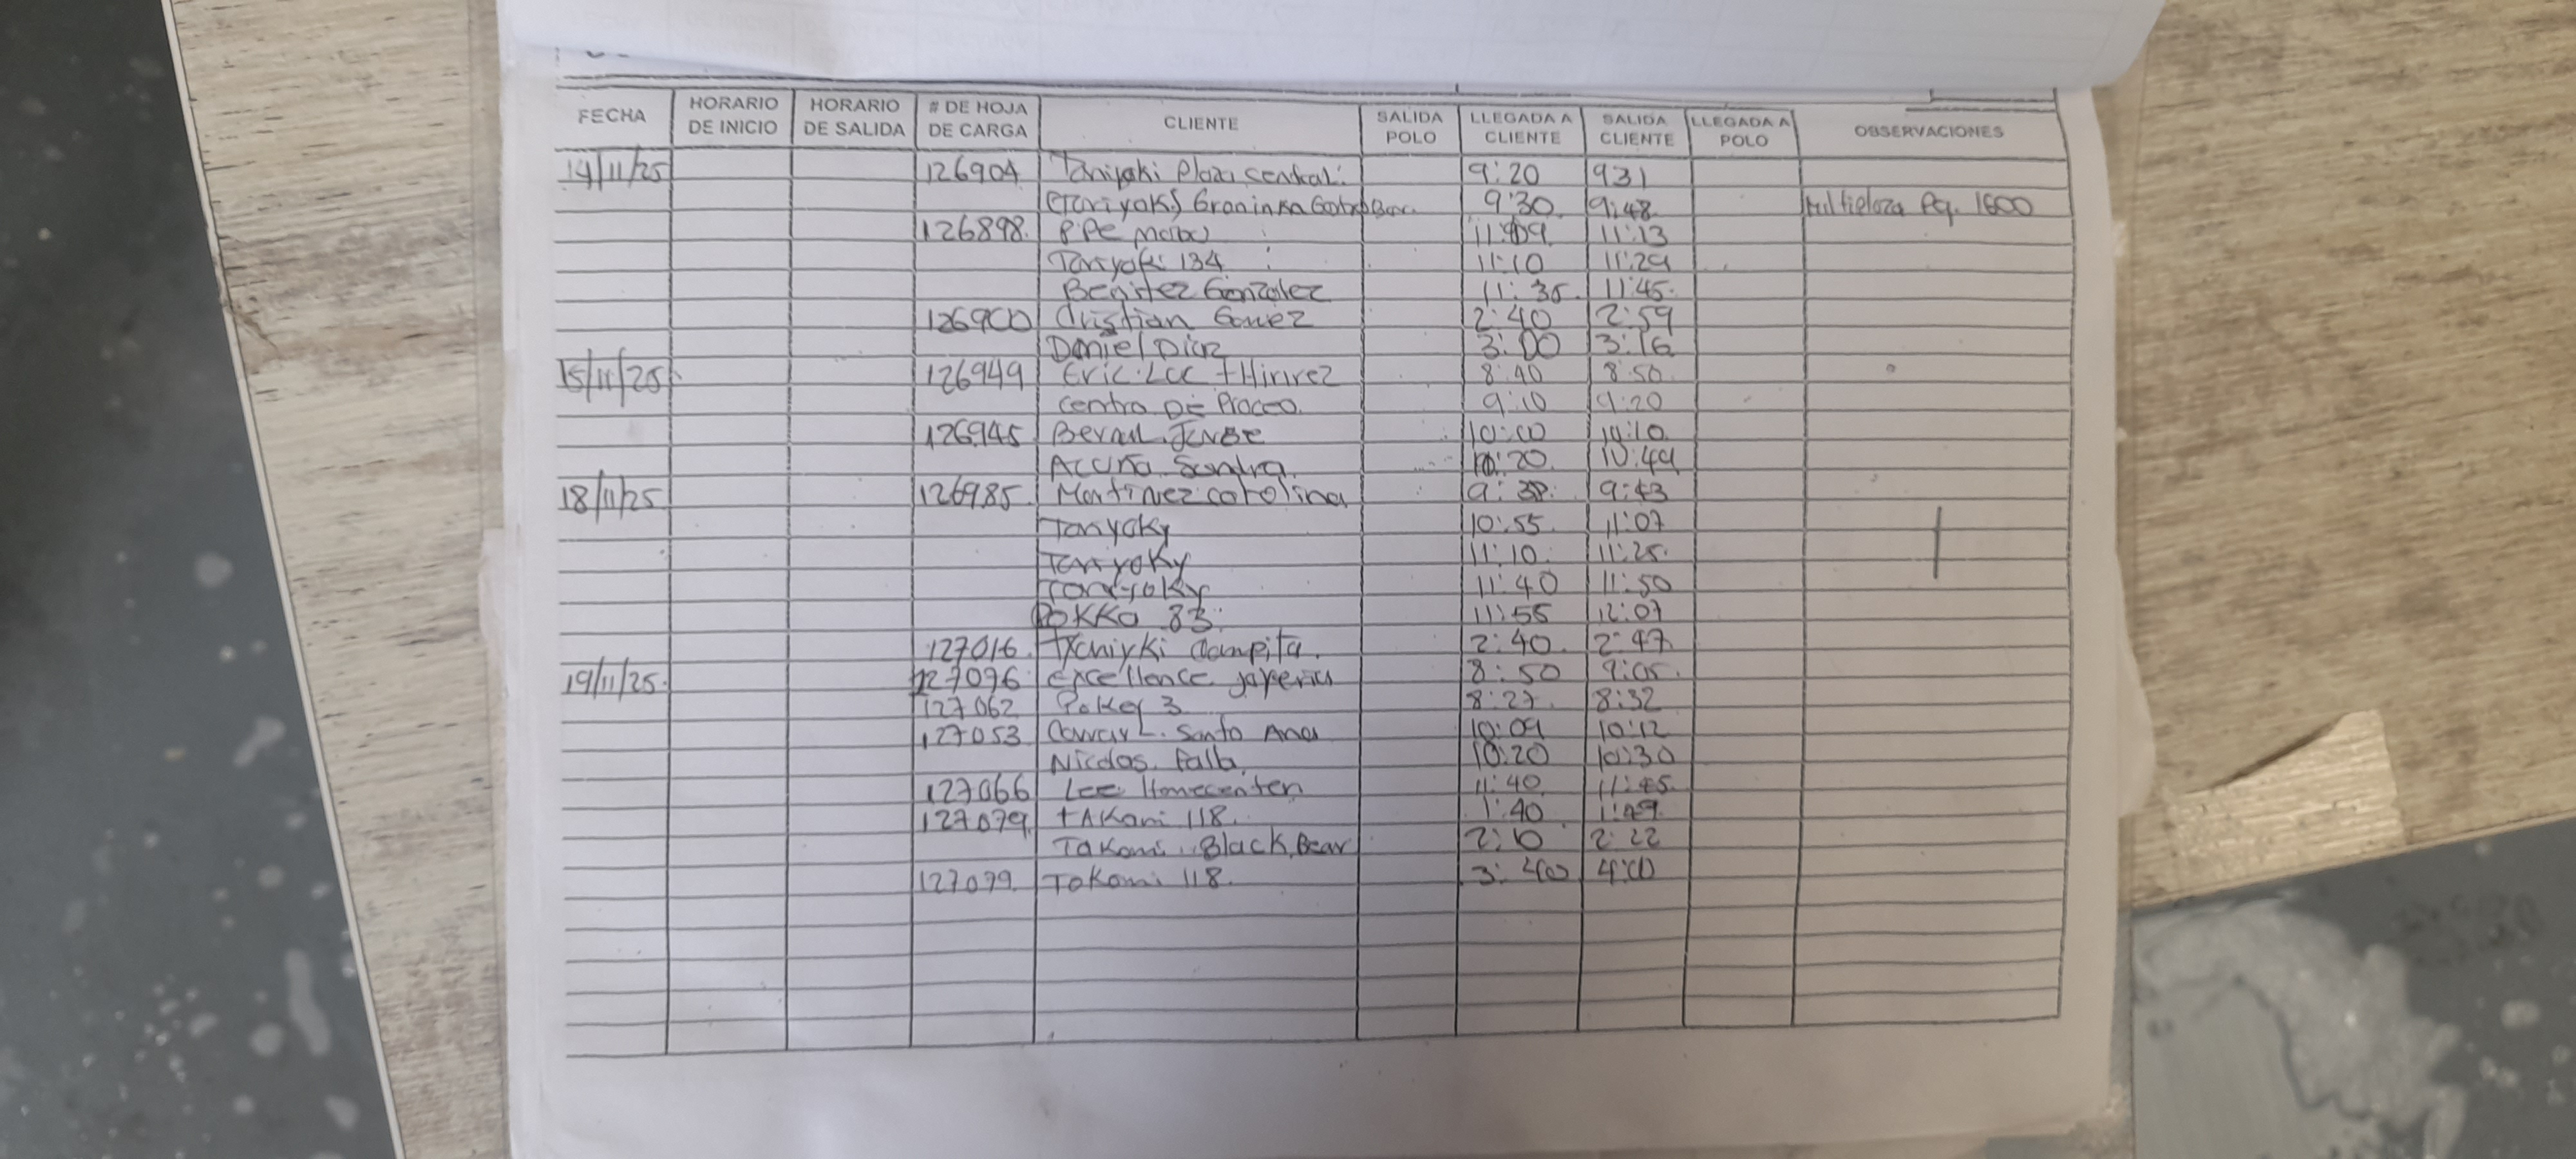 FECHA HORARIO DE INICIO HORARIO DE SALIDA # DE HOJA DE CARGA CLIENTE SALIDA POLO LLEGADA A CLIENTE SALIDA CLIENTE LLEGADA A POLO OBSERVACIONES
14/11/25 126904 Taniyaki Plaza Central. 9:20 931
9:30 9:48 Multiplaza Pq. 1600
126898 11:09 11:13
Taniyaki 134 11:10 11:29
Benitez Gonzalez 11:35 11:45
126900 Cristian Gomez 2:40 2:59
Daniel Diaz 3:00 3:16
15/11/25 126949 Eric Lcc + 8:40 8:50
Centro DE 9:10 9:20
126945 10:00 10:10
Acuña Sandra 10:20 10:49
18/11/25 126985 Martinez carolina 9:38 9:43
Tanyoky 10:55 11:07
Tanyoky 11:10 11:25
11:40 11:50
POKKO 83 11:55 12:07
127016 2:40 2:47
19/11/25 127096 Excellence 8:50 9:05
127062 Pokey 3 8:27 8:32
127053 L. Santo Ana 10:09 10:12
Nicolas Falla 10:20 10:30
127066 Lee Homecenter 11:40 11:45
127079 tAKami 118. 1:40 1:49
Takami Black Bear 2:10 2:22
127079 Takami 118. 3:40 4:00